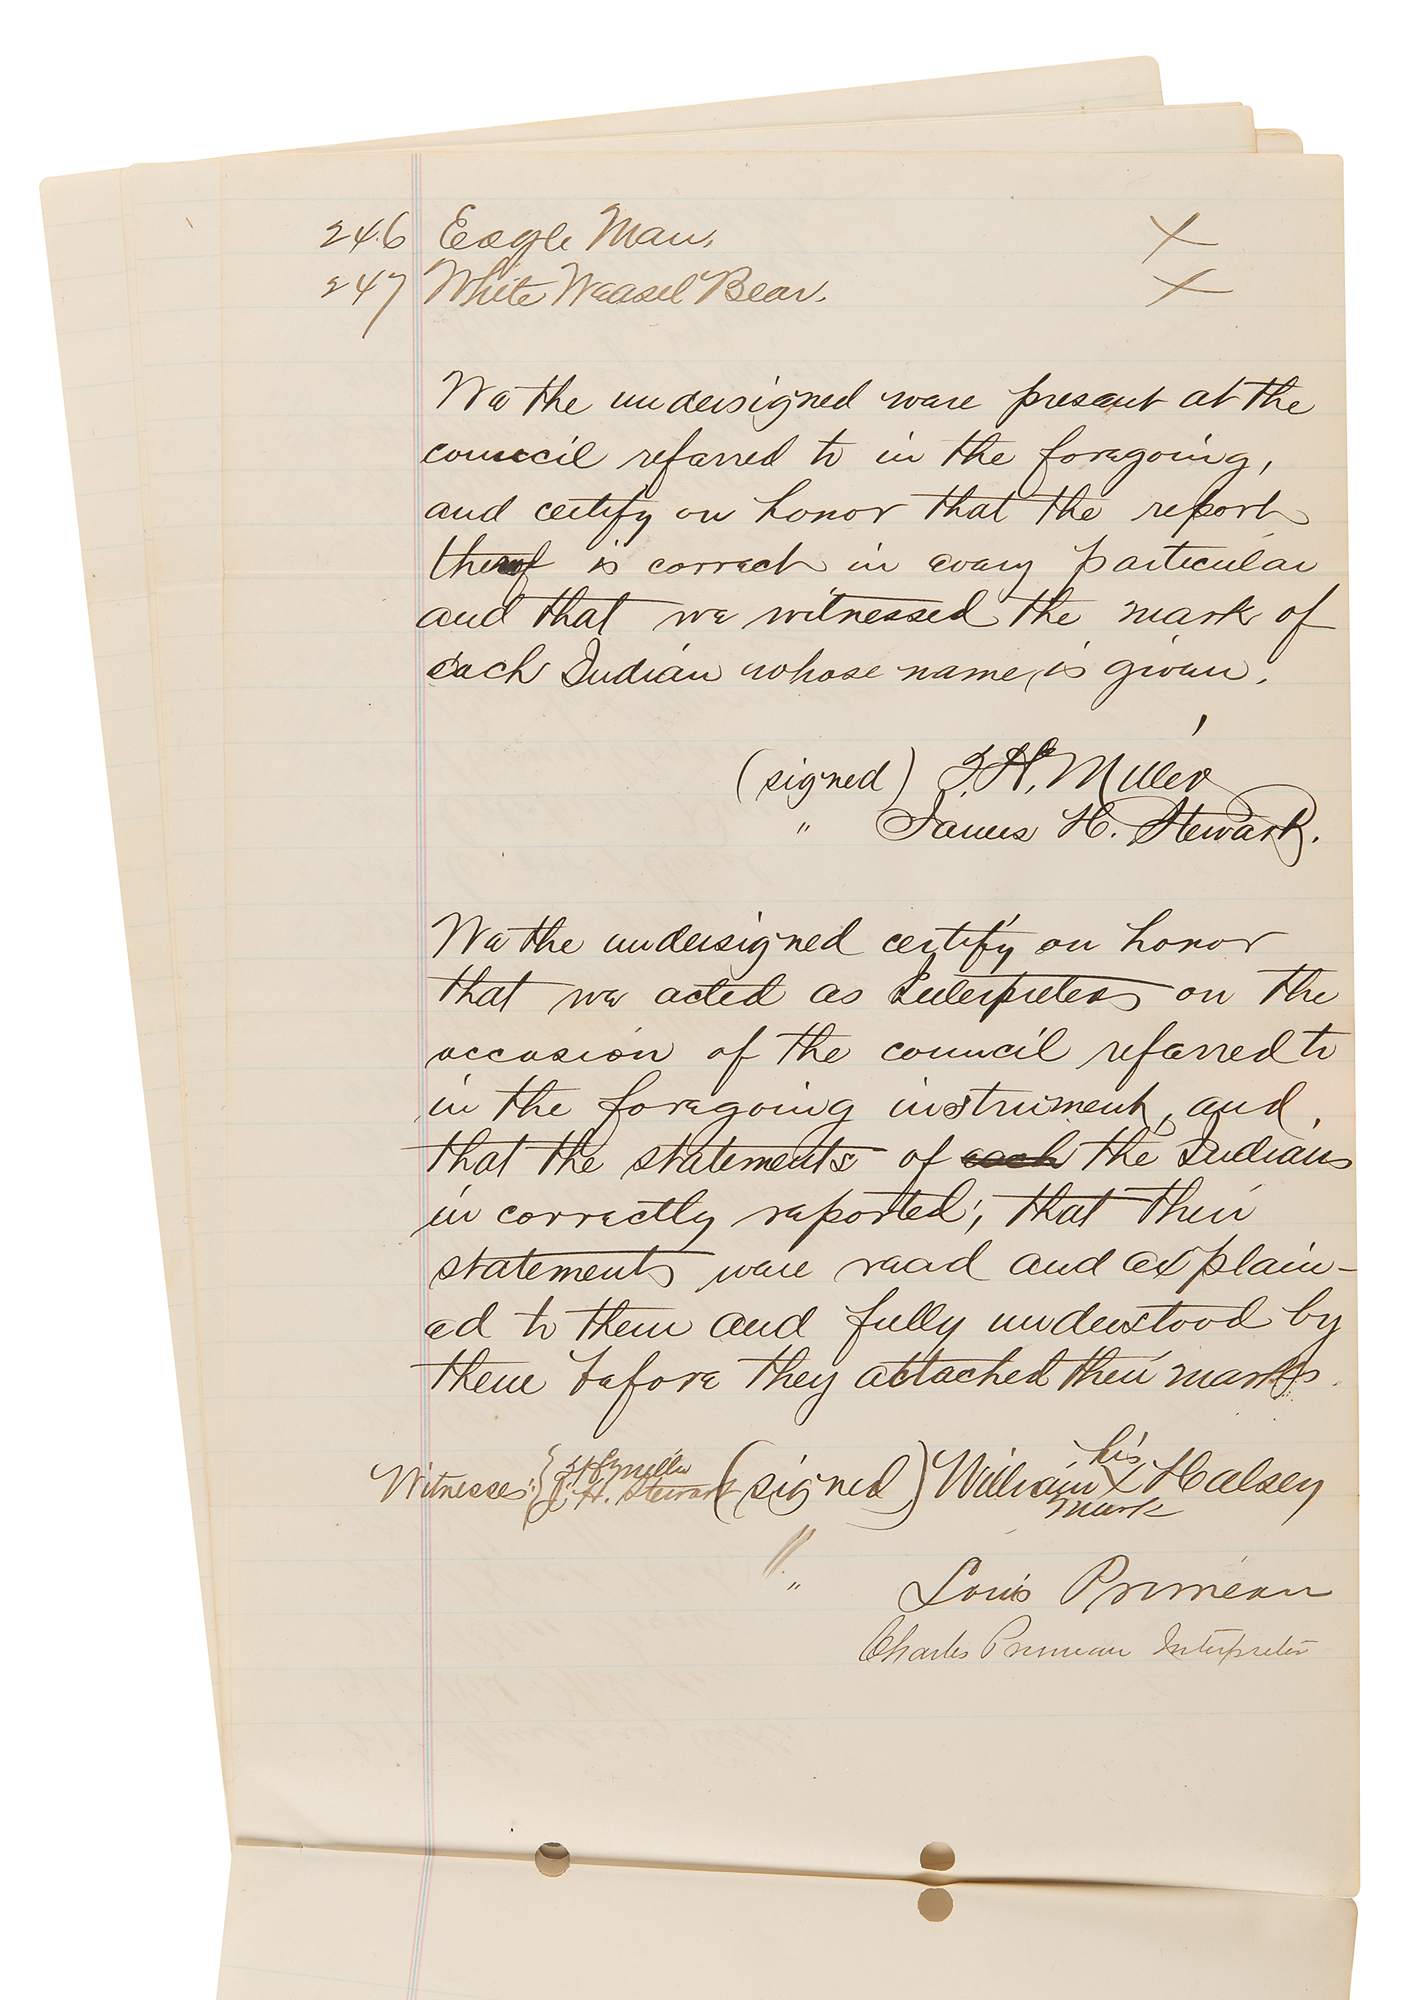 246 Eagle Man. X
247 White Weasel Bear. X
We the undersigned were present at the
council referred to in the foregoing,
and certify on honor that the report
thereof is correct in every particular
and that we witnessed the mark of
each Indian whose name is given.
(signed) J. H. Miller
" James H. Stewart.
We the undersigned certify on honor
that we acted as Interpreters on the
occasion of the council referred to
in the foregoing instrument, and
that the statements of each the Indians
in correctly reported; that their
statements were read and explain-
ed to them and fully understood by
them before they attached their marks.
his
Witnesses: { J H Miller (signed) William X Halsey
J. H. Stewart mark
" Louis Primeau
Charles Primeau Interpreter